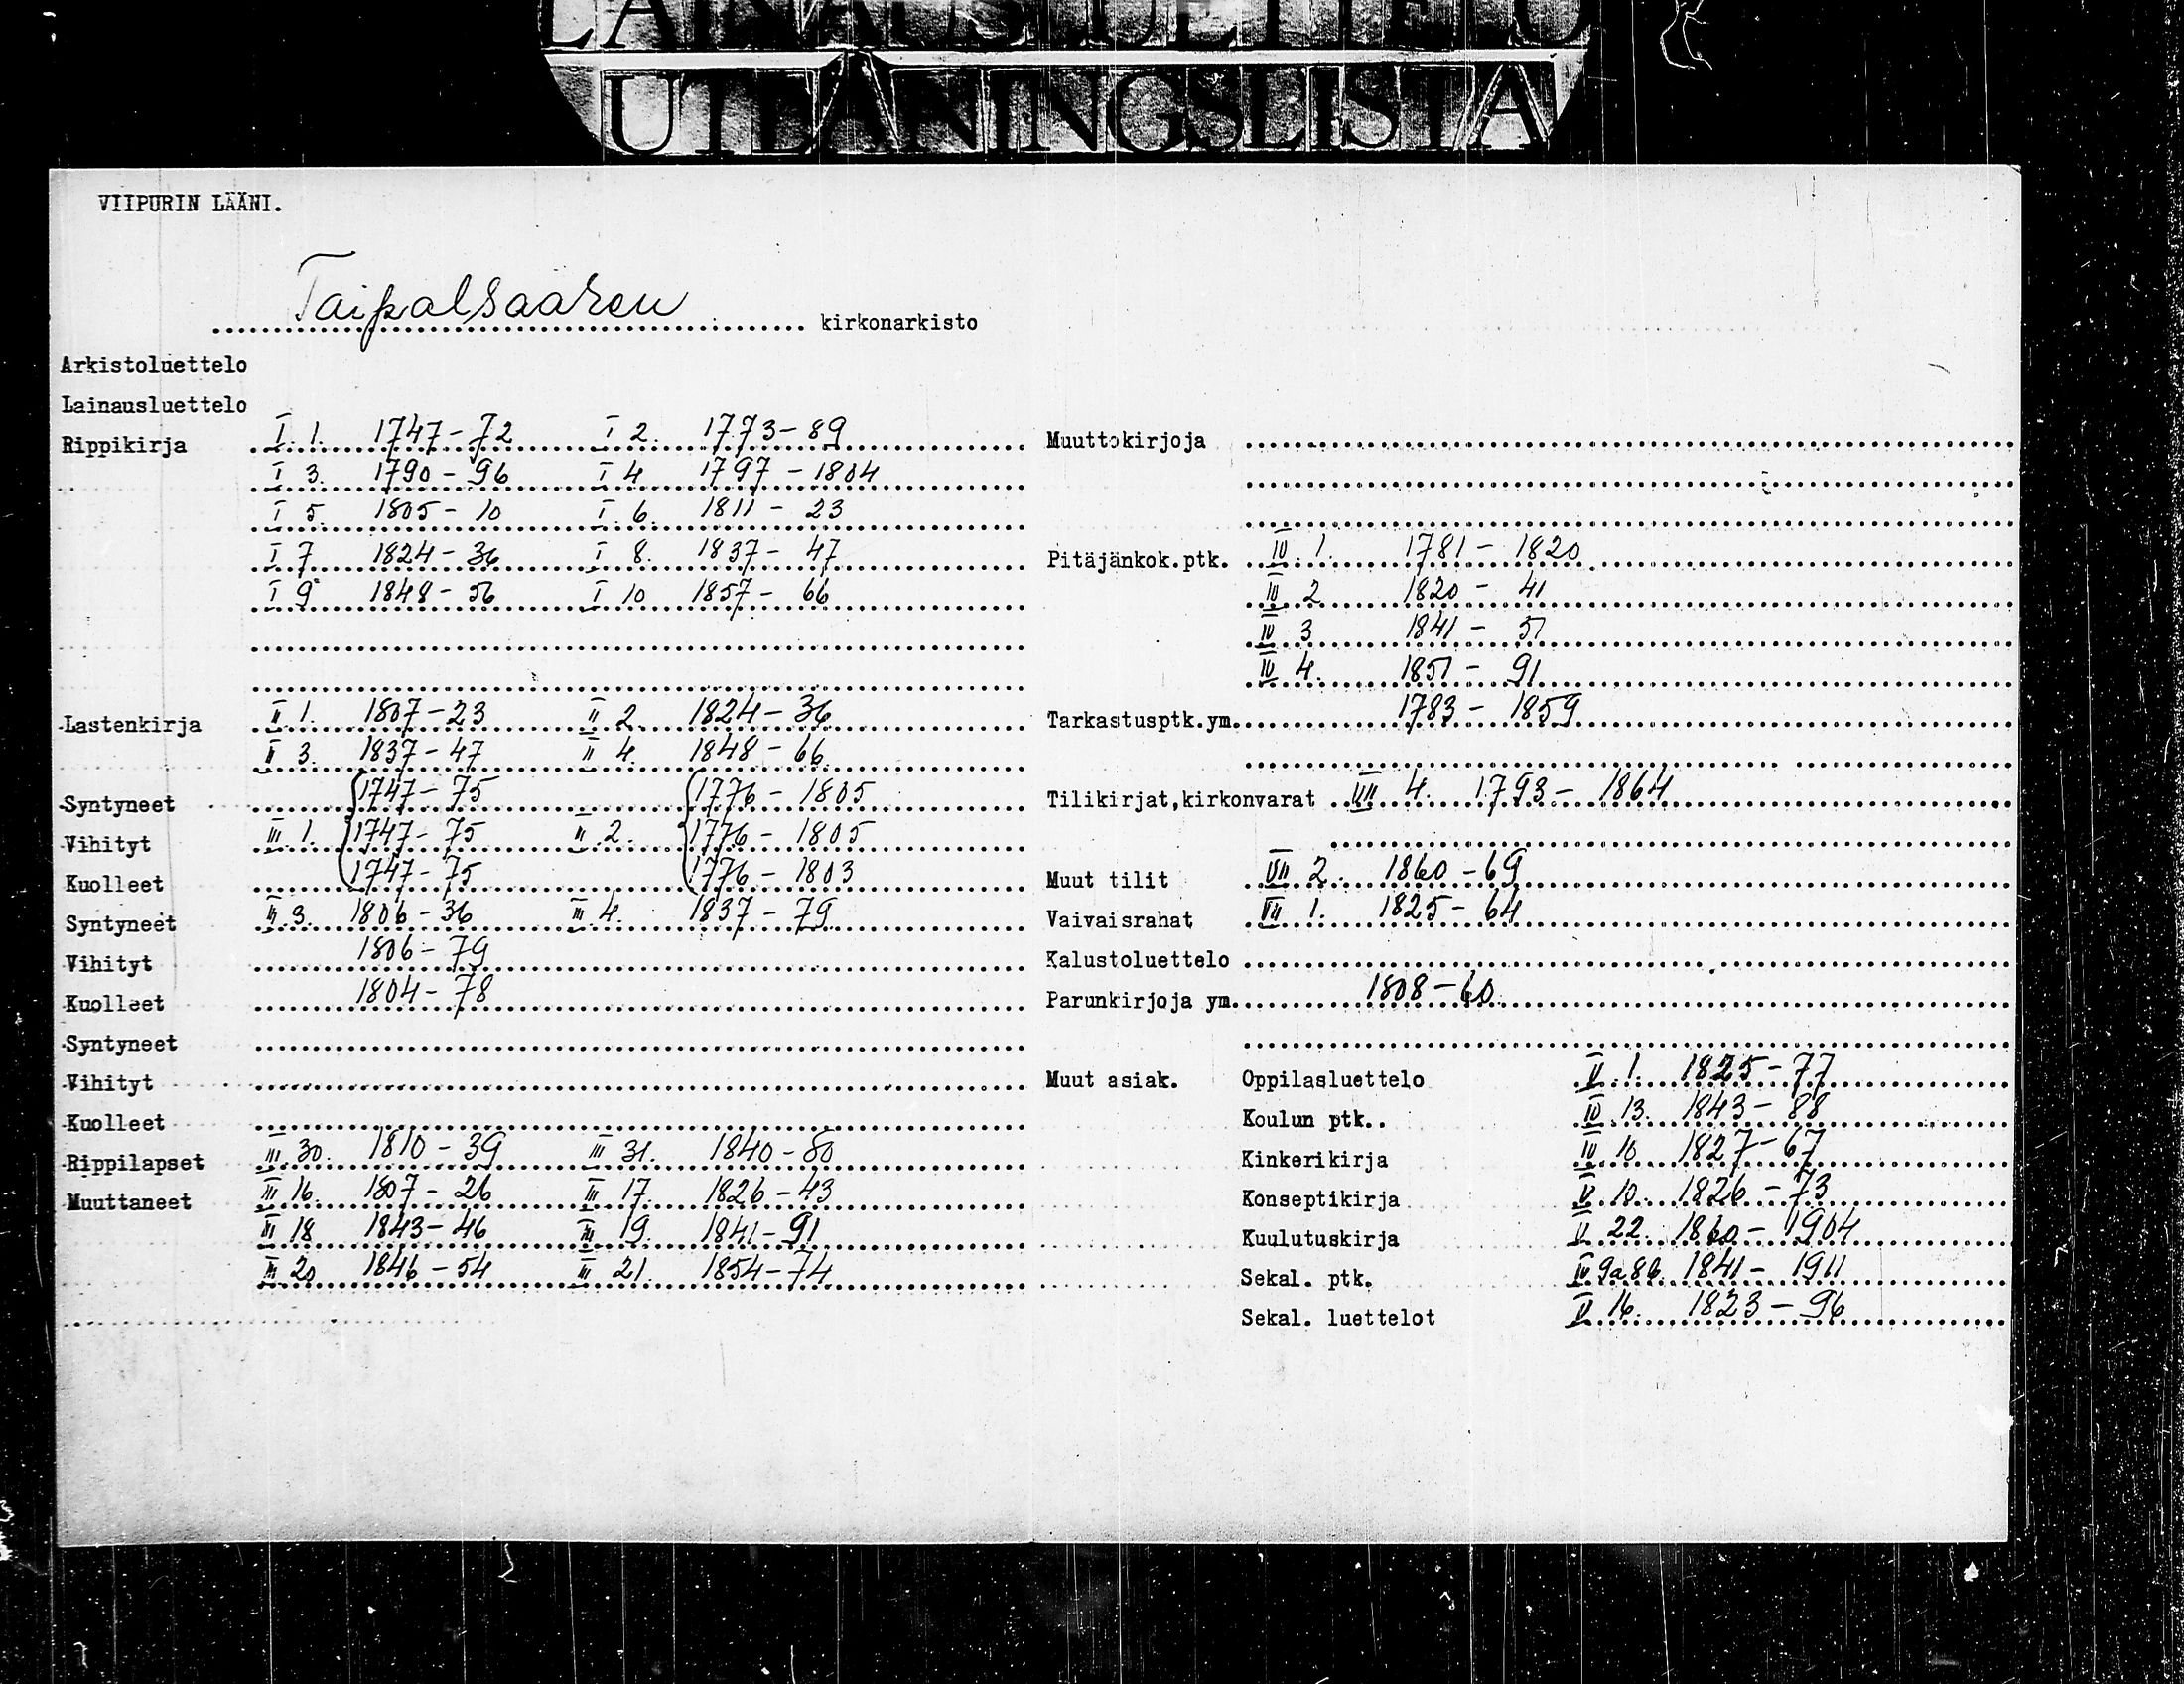 LAINAUSLUETTELO
UTLÅNINGSLISTA
VIIPURIN LÄÄNI.
Taipalsaaren kirkonarkisto
Arkistoluettelo
Lainausluettelo
Rippikirja I.1. 1747-72 I 2. 1773-89
I 3. 1790-96 I 4 1797-1804
I 5. 1805-10 I.6. 1811-23
I 7 1824-36 I 8. 1837-47
I 9 1848-56 I 10 1857-66
Lastenkirja II 1. 1807-23 II 2. 1824-36
II 3. 1837-47 II 4. 1848-66
Syntyneet 1747-75 1776-1805
Vihityt III.1. 1747-75 II.2. 1776-1805
Kuolleet 1747-75 1776-1803
Syntyneet III.3. 1806-36 III 4. 1837-79
Vihityt 1806-79
Kuolleet 1804-78
Syntyneet
Vihityt
Kuolleet
Rippilapset III 30. 1810-39 III 31. 1840-80
Muuttaneet III 16. 1807-26 III 17. 1826-43
III 18 1843-46 III 19. 1841-91
III 20 1846-54 III 21. 1854-74
Muuttokirjoja
Pitäjänkok.ptk. IV.1. 1781-1820
IV 2 1820-41
IV 3 1841-51
IV 4. 1851-91
Tarkastusptk.ym. 1783-1859
Tilikirjat,kirkonvarat VII 4. 1793-1864
Muut tilit VII 2. 1860-69
Vaivaisrahat VII 1. 1825-64
Kalustoluettelo
Parunkirjoja ym. 1808-60
Muut asiak. Oppilasluettelo V.1. 1825-77
Koulun ptk.. IV 13. 1843-88
Kinkerikirja IV 10 1827-67
Konseptikirja V.10. 1826-73
Kuulutuskirja V 22. 1860-1904
Sekal. ptk. IV 9a8b. 1841-1911
Sekal. luettelot V 16. 1823-96